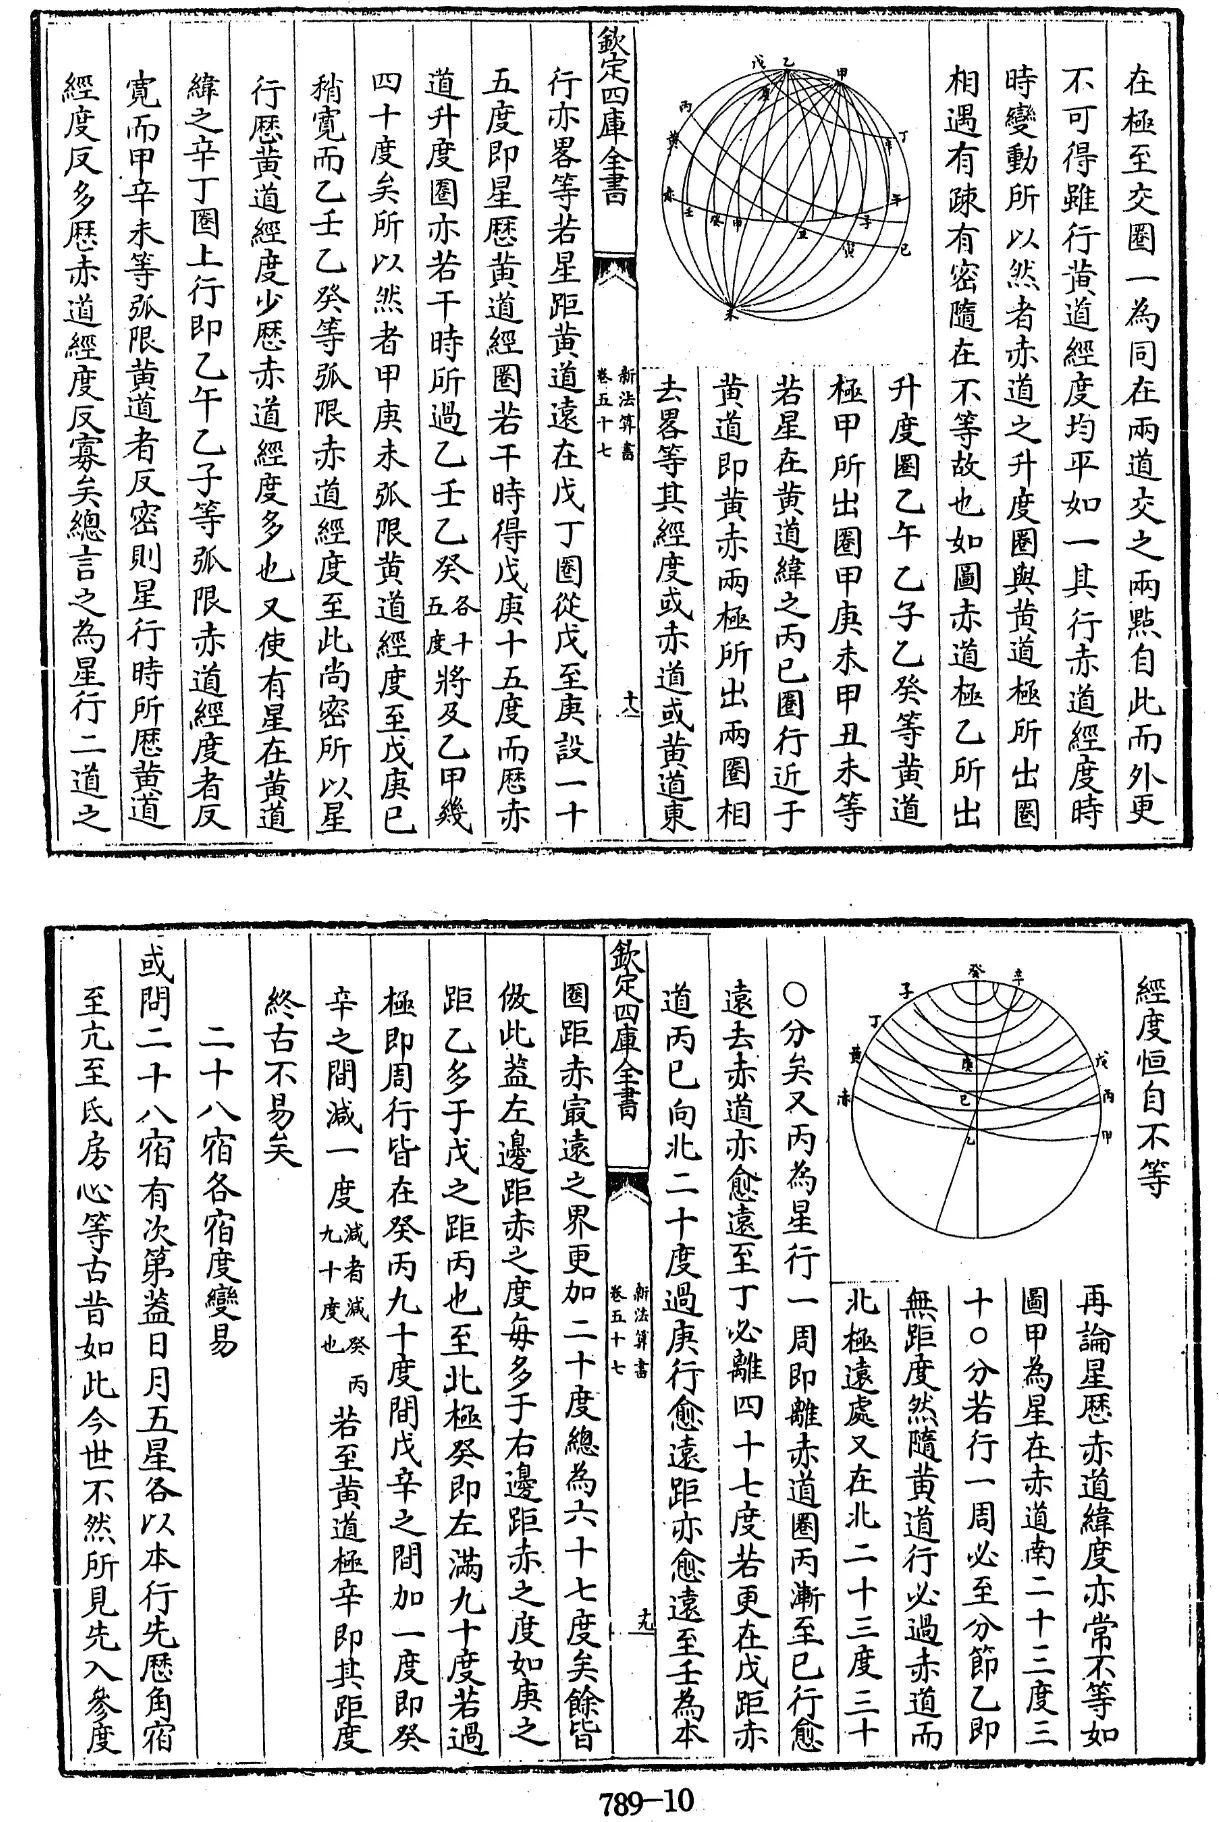 在極至交圈一為同在兩道交之兩點自此而外更
不可得雖行黃道經度均平如一其行赤道經度時
時變動所以然者赤道之升度圈與黃道極所出圈
相遇有疎有密隨在不等故也如圖赤道極乙所出
戊 乙 甲
庚
丙 丁
黃 辛
赤 壬 癸 甲 丑 子 午
寅 巳
未
升度圈乙午乙子乙癸等黃道
極甲所出圈甲庚未甲丑未等
若星在黃道緯之丙巳圈行近于
黃道即黃赤兩極所出兩圈相
去畧等其經度或赤道或黃道東
欽定四庫全書
新法算書
卷五十七
十八
行亦畧等若星距黃道遠在戊丁圈從戊至庚設一十
五度即星歴黃道經圈若干時得戊庚十五度而歴赤
道升度圈亦若干時所過乙壬乙癸各十五度將及乙甲幾
四十度矣所以然者甲庚未弧限黃道經度至戊庚已
稍寬而乙壬乙癸等弧限赤道經度至此尚密所以星
行歴黃道經度少歴赤道經度多也又使有星在黃道
緯之辛丁圈上行即乙午乙子等弧限赤道經度者反
寬而甲辛未等弧限黃道者反密則星行時所歴黃道
經度反多歴赤道經度反寡矣總言之為星行二道之
經度恒自不等
癸 辛
子
丁 戊
黃 庚 丙
赤 巳 甲
乙
再論星歴赤道緯度亦常不等如
圖甲為星在赤道南二十三度三
十〇分若行一周必至分節乙即
無距度然隨黃道行必過赤道而
北極遠處又在北二十三度三十
〇分矣又丙為星行一周即離赤道圈丙漸至巳行愈
遠去赤道亦愈遠至丁必離四十七度若更在戊距赤
道丙巳向北二十度過庚行愈遠距亦愈遠至壬為本
欽定四庫全書
新法算書
卷五十七
十九
圈距赤最遠之界更加二十度總為六十七度矣餘皆
倣此葢左邊距赤之度每多于右邊距赤之度如庚之
距乙多于戊之距丙也至北極癸即左滿九十度若過
極即周行皆在癸丙九十度間戊辛之間加一度即癸
辛之間減一度減者減癸丙九十度也若至黃道極辛即其距度
終古不易矣
二十八宿各宿度變易
或問二十八宿有次第葢日月五星各以本行先歴角宿
至亢至氐房心等古昔如此今世不然所見先入參度
789-10